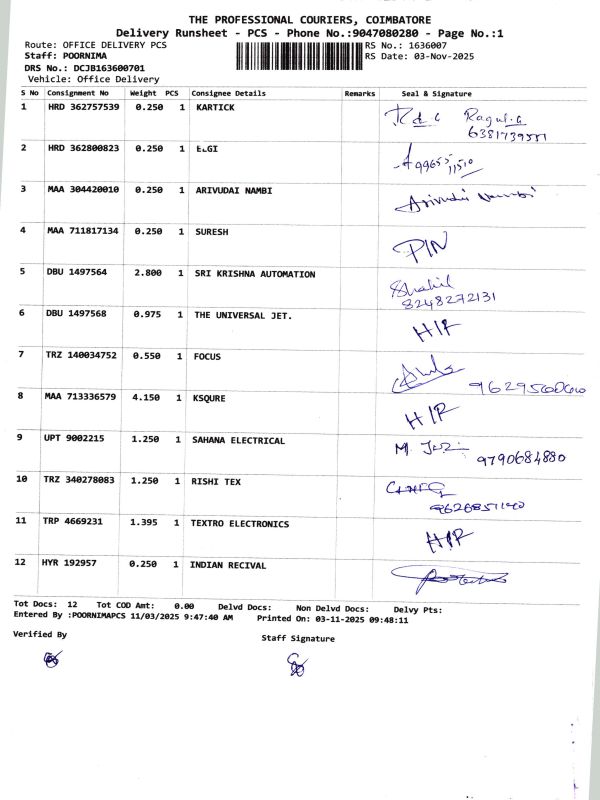 THE PROFESSIONAL COURIERS, COIMBATORE
Delivery Runsheet - PCS - Phone No.:9047080280 - Page No.:1
Route: OFFICE DELIVERY PCS RS No.: 1636007
Staff: POORNIMA RS Date: 03-Nov-2025
DRS No.: DCJB163600701
Vehicle: Office Delivery
S No Consignment No Weight PCS Consignee Details Remarks Seal & Signature
1 HRD 362757539 0.250 1 KARTICK Ragul.G
6381739551
2 HRD 362800823 0.250 1 ELGI
3 MAA 304420010 0.250 1 ARIVUDAI NAMBI Arivudai Nambi
4 MAA 711817134 0.250 1 SURESH PIN
5 DBU 1497564 2.800 1 SRI KRISHNA AUTOMATION Shahil
8248272131
6 DBU 1497568 0.975 1 THE UNIVERSAL JET. H/R
7 TRZ 140034752 0.550 1 FOCUS
8 MAA 713336579 4.150 1 KSQURE H/R
9 UPT 9002215 1.250 1 SAHANA ELECTRICAL M.
9790684880
10 TRZ 340278083 1.250 1 RISHI TEX
11 TRP 4669231 1.395 1 TEXTRO ELECTRONICS H/R
12 HYR 192957 0.250 1 INDIAN RECIVAL
Tot Docs: 12 Tot COD Amt: 0.00 Delvd Docs: Non Delvd Docs: Delvy Pts:
Entered By :POORNIMAPCS 11/03/2025 9:47:40 AM Printed On: 03-11-2025 09:48:11
Verified By Staff Signature